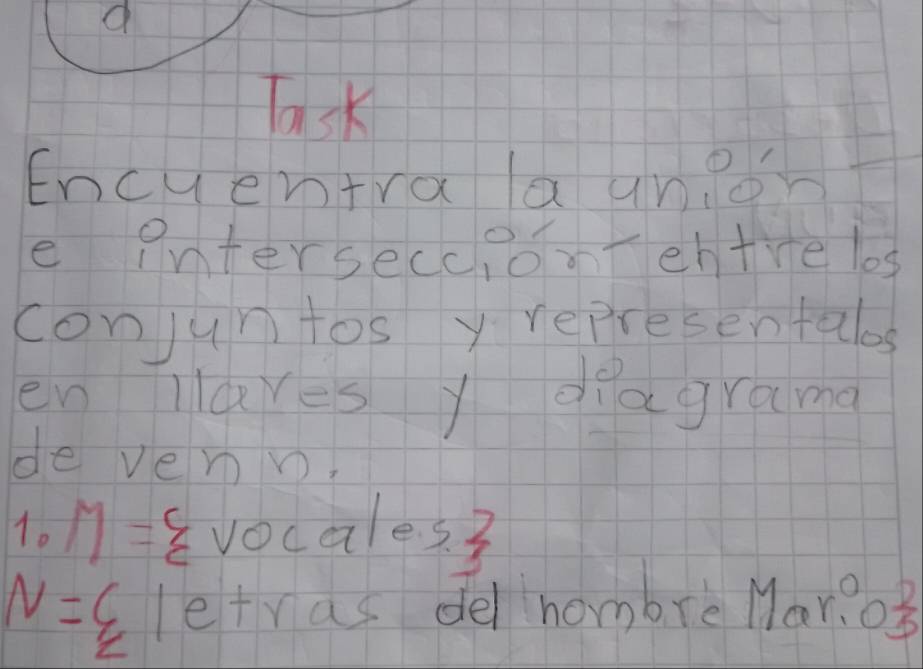 d
Task
Encuentra la unión
e intersección entre los
conjuntos y representalos
en llaves y diagrama
de venn.
1. M = { vocales. }
N = { letras del nombre Mario }